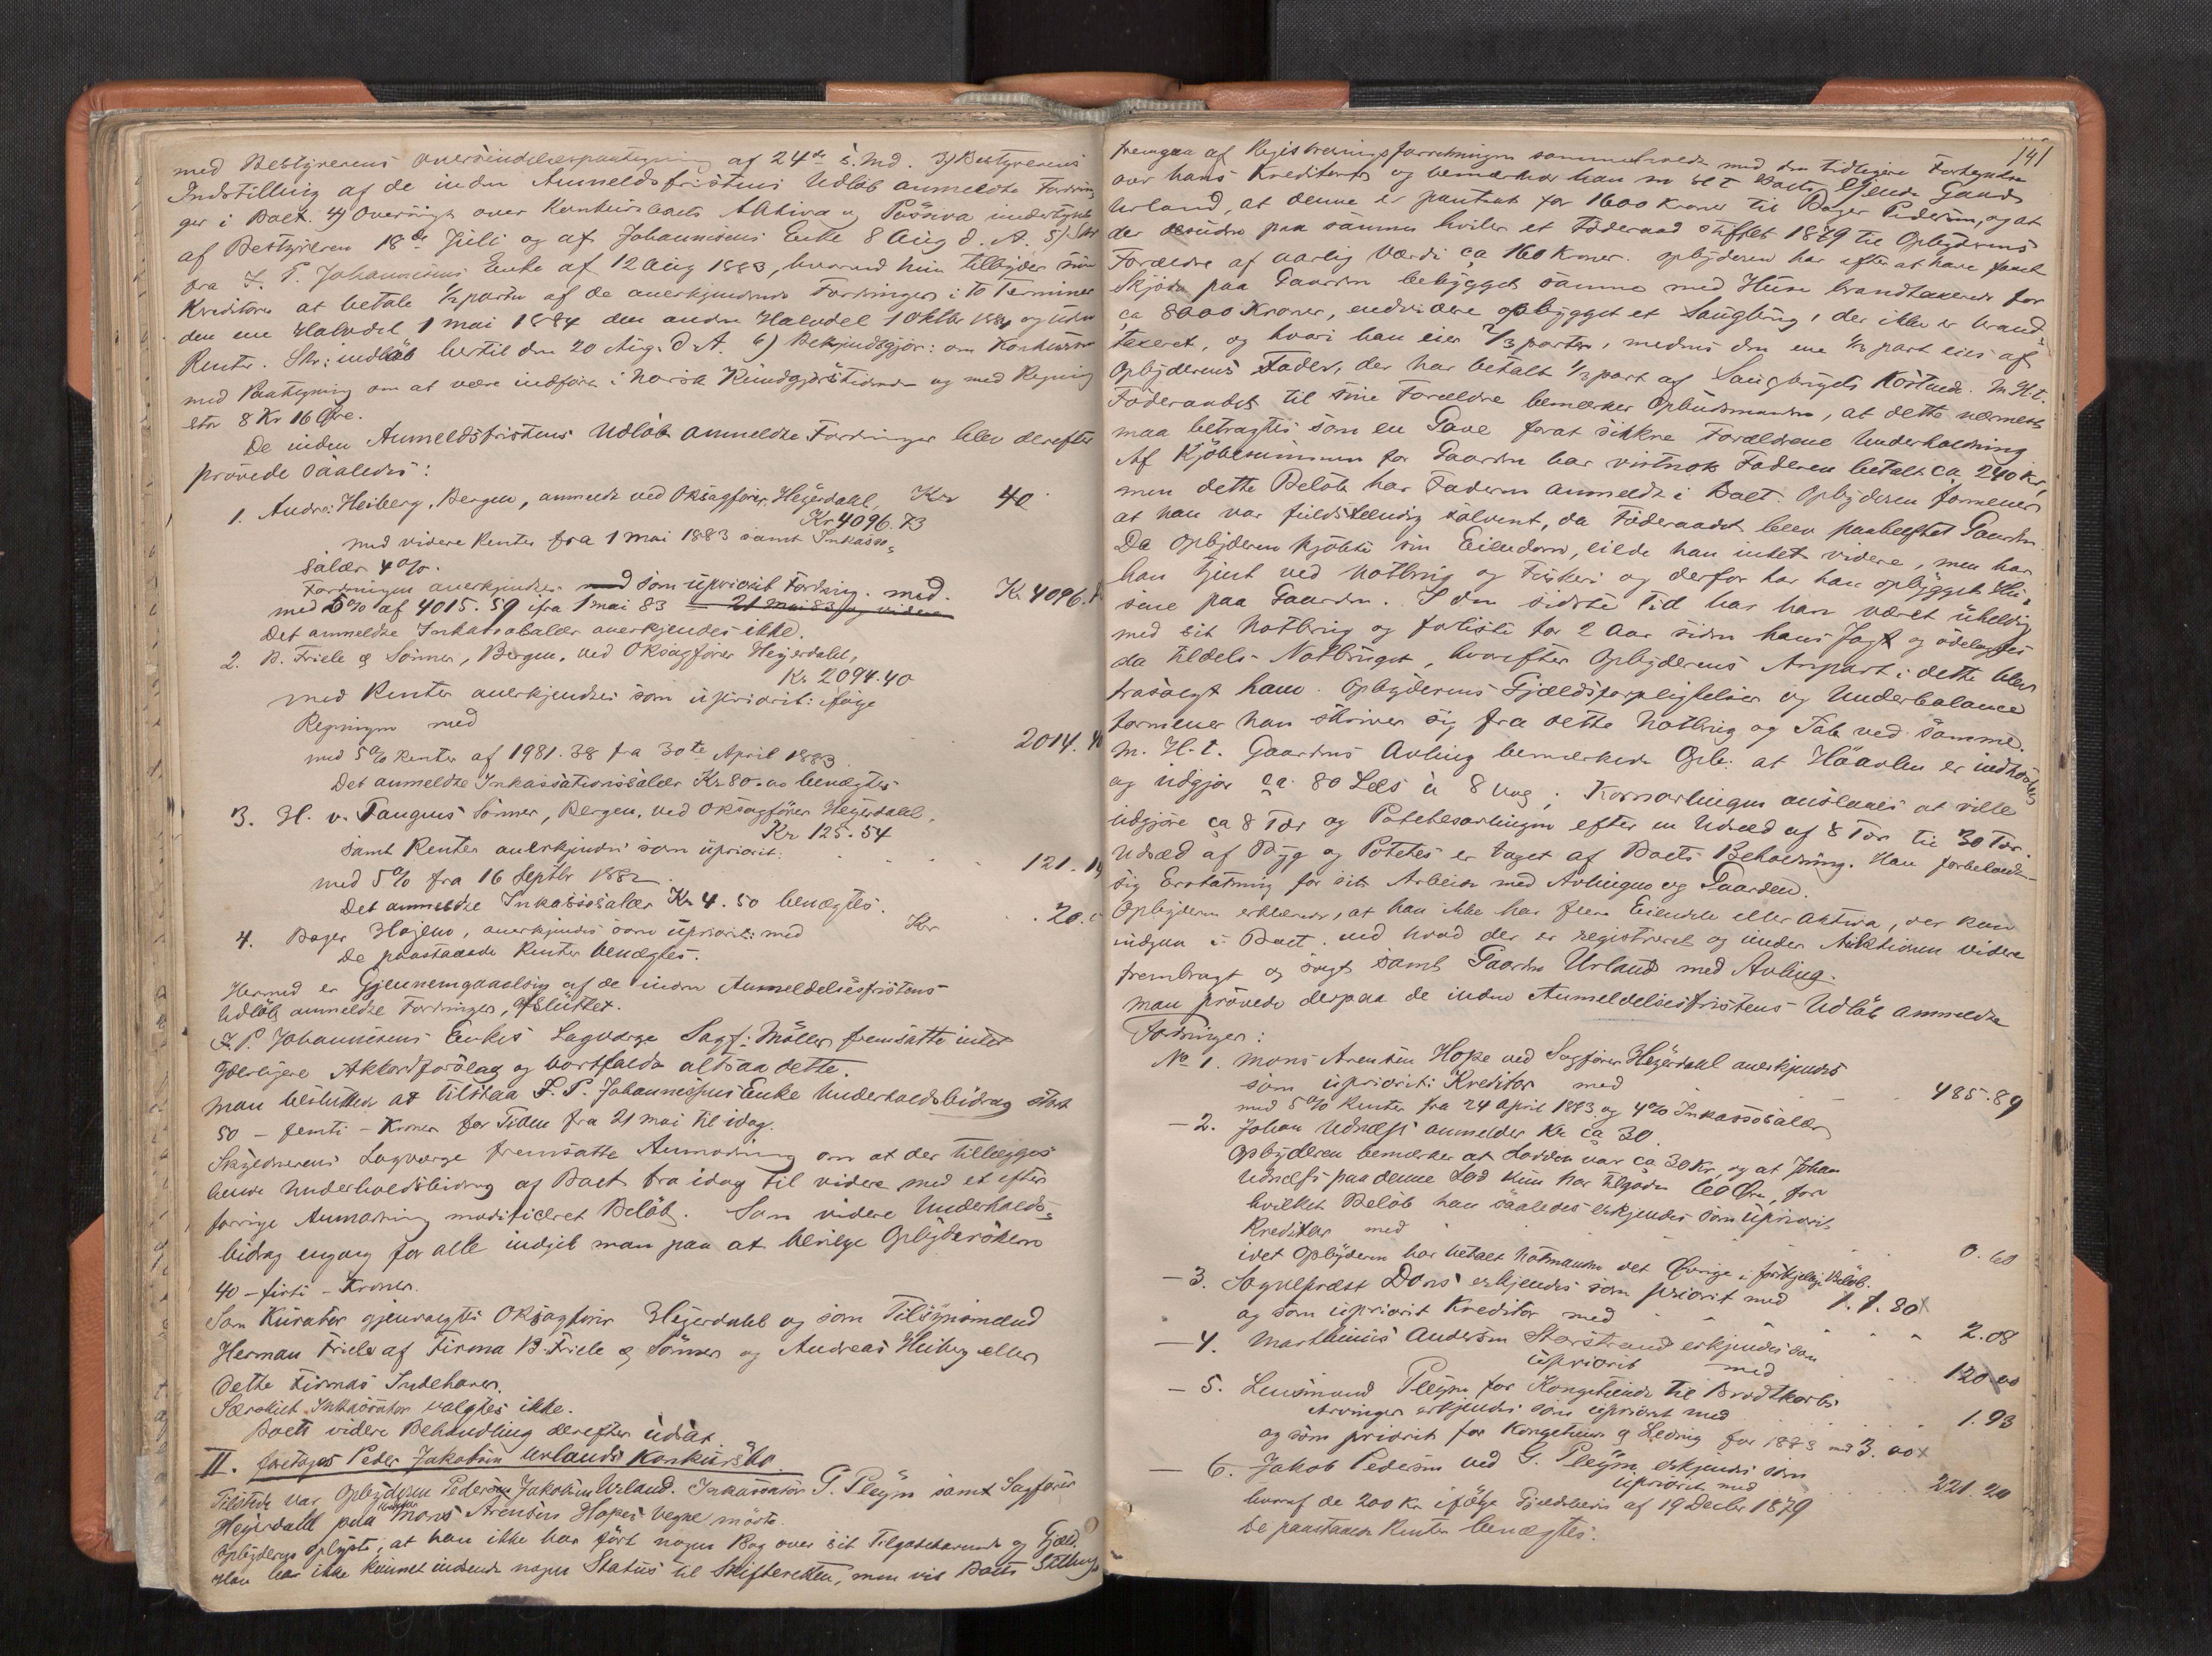 med Bestyrerens Oversendelsespaategning af 24de s. Md. 3) Bestyrerens
Indstilling af de inden Anmeldsfristens Udløb anmeldte Fordrin-
ger i Boet. 4) Oversigt over Konkursboets Aktiva og Passiva undertegnet
af Bestyreren 18de Juli og af Johannesens Enke 8 Aug d. A. 5) Skr
fra J. P. Johannesens Enke af 12 Aug 1883, hvorved hun tilbyder sine
Kreditorer at betale 1/2parten af de anerkjendende Fordringer i to Terminer
den ene Halvdel 1 Mai 1884 den anden Halvdel 1 Oktbr 1884 og uden
Renter. Skr: indløb hertil den 20 Aug. d. A. 6) Bekjendtgjør: om Konkursen
med Paategning om at være indført i Norsk Kundgjørstidende og med Regning
stor 8 Kr 16 Øre.
De inden Anmeldsfristens Udløb anmeldte Fordringer blev derefter
prøvede saaledes:
1. Andr: Heiberg, Bergen, anmeldt ved Oksagfører Heyerdahl, Kr 40
Kr 4096.73
med videre Renter fra 1 Mai 1883 samt Inkasso-
salær 4%.
Fordringen anerkjendtes med som upriorit Fordring med. Kr 4096.
med 5% af 4015.59 ifra 1 Mai 83 21 Mai 83 og videre
Det anmeldte Inkassosalær anerkjendes ikke.
2. B. Friele & Sønner, Bergen, ved Oksagfører Heyerdahl,
Kr 2094.40
med Renter anerkjendtes som upriorit: ifølge
Regningen med 2014.40
med 5% Renter af 1981.38 fra 30te April 1883
Det anmeldte Inkassationssalær Kr 80.00 benægtes
3. H. v. Tangens Sønner, Bergen, ved Oksagfører Heyerdahl,
Kr 125.54
samt Renter anerkjendes som upriorit: 121.
med 5% fra 16 Septbr 1882
Det anmeldte Inkassosalær Kr 4.50 benægtes.
4. Bager Højem, anerkjendes som upriorit: med Kr 20.
De paastaaede Renter benægtes.
Hermed er Gjennemgaaelsen af de inden Anmeldelsesfristens
Udløb anmeldte Fordringer, afsluttet.
J. P. Johannesens Enkes Lagværge Sagf: Møller fremsatte intet
yderligere Akkordforslag og bortfaldt altsaa dette.
Man besluttede at tilstaa J. P. Johannessens Enke Underholdsbidrag stort
50 - femti - Kroner for Tiden fra 21 Mai til idag.
Skyldnerens Lagværge fremsatte Anmodning om at der tillægges
hende Underholdsbidrag af Boet fra idag til videre med et efter
forrige Anmodning modificeret Beløb. Som videre Underholds-
bidrag engang for alle indgik man paa at bevilge Opbydersken
40 - firti - Kroner.
Som Kurator gjenvalgtes Oksagfører Heyerdahl og som Tilsynsmænd
Herman Friele af Firma B. Friele & Sønner og Andreas Heiberg eller
dette Firmas Indehaver.
Særskilt Inkassator valgtes ikke.
Boets videre Behandling derefter udsat.
II. foretoges Peder Jakobsen Urlands Konkursbo.
Tilstede var Opbyderen Peder Jakobsen Urland. Inkassator P. Pleym samt Sagfører
Heyerdahl paa Mons Arentsen Hopes Vegne mødte.
Opbyderen oplyste, at han ikke har ført nogen Bog over sit Tilgodehavende og Gjæld.
Han har ikke kunnet indsende nogen Status til Skifteretten, men vil Boets Stilling
141
fremgaa af Registreringsforretningen sammenholdt med den tidligere Fortegnelse
over hans Kreditorer og bemærker han m. H t Boets Eiende Gaard
Urland, at denne er pantsat for 1600 Kroner til Bager Pedersen, og at
der desuden paa samme hviler et Føderaad stiftet 1879 til Opbyderens
Forældre af aarlig Værdi ca 160 Kroner. Opbyderen har efter at have faaet
Skjøde paa Gaarden bebygget samme med Huse brandtaxerede for
ca 8000 Kroner, endvidere opbygget et Saugbrug, der ikke er brand-
taxeret, og hvori han eier 2/3 parter, medens den ene 1/3 part eies af
Opbyderens Fader, der har betalt 1/3 part af Saugbrugets Kostende. M. H. t.
Føderaadet til sine Forældre bemærker Opbudsmanden, at dette nærmest
maa betragtes som en Gave forat sikkre Forældrene Underholdning
Af Kjøbesummen for Gaarden har vistnok Faderen betalt ca 240 Kr,
men dette Beløb har Faderen anmeldt i Boet. Opbyderen formener
at han var fuldstændig solvent, da Føderaadet blev paaheftet Gaarden
Da Opbyderen kjøbte sin Eiendom, eiede han intet videre, men har
han tjent ved Notbrug og Fiskeri og derfor har han opbygget Hu-
sene paa Gaarden. I den sidste Tid har han været uheldig
med sit Notbrug og forliste for 2 Aar siden hans Jagt og ødelagdes
da tildels Notbruget, hvorefter Opbyderens Anpart i dette blev
frasolgt ham. Opbyderens Gjældsforpligtelser og Underbalance
formener han skriver sig fra dette Notbrug og Tab ved samme.
M. H. t. Gaardens Avling bemærkede Opb: at Høavlen er indhøstet
og udgjør ca 80 Læs à 8 Vog; Kornavlingen ansloges at ville
udgjøre ca 8 Tdr og Potetesavlingen efter en Udsæd af 8 Tdr til 30 Tdr.
Udsæd af Byg og Potetes er taget af Boets Beholdning. Han forbeholdt
sig Erstatning for sit Arbeide med Avlingen og Gaarden.
Opbyderen erklærede, at han ikke har flere Eiendele eller Aktiva, der kan
indgaa i Boet, end hvad der er registreret og under Auktionen videre
frembragt og solgt samt Gaarden Urland med Avling.
Man prøvede derpaa de inden Anmeldelsesfristens Udløb anmeldte
Fordringer:
No 1. Mons Arentsen Hope ved Sagfører Heyerdahl anerkjendes
som upriorit: Kreditor med 485.89
med 5% Renter fra 24 April 1883 og 4% Inkassosalær
- 2. Johan Udnæss anmelder Kr ca 30.
Opbyderen bemærker at Lodden var ca 30 Kr, og at Johan
Udnæss paa denne Lod kun har tilgode 60 Øre, for
hvilket Beløb han saaledes erkjendes som upriorit
Kreditor med 0.60
idet Opbyderen har betalt Notmanden det Øvrige i forskjellige Beløb.
- 3. Sogneprest Dons erkjendes som priorit med 1.80
og som upriorit Kreditor med 2.08
- 4. Marthinus Andersen Storstrand erkjendes som
upriorit med 120.00
- 5. Lensmand Pleym for Kongetiende til Brodtkorbs
Arvinger erkjendes som upriorit med 1.93
og som priorit for Kongetiende & Ledning for 1883 med 3.00
- 6. Jakob Pedersen ved G. Pleym erkjendes som
upriorit med 221.20
hvoraf de 200 Kr ifølge Gjældsbevis af 19 Decbr 1879
De paastaaede Renter benægtes.